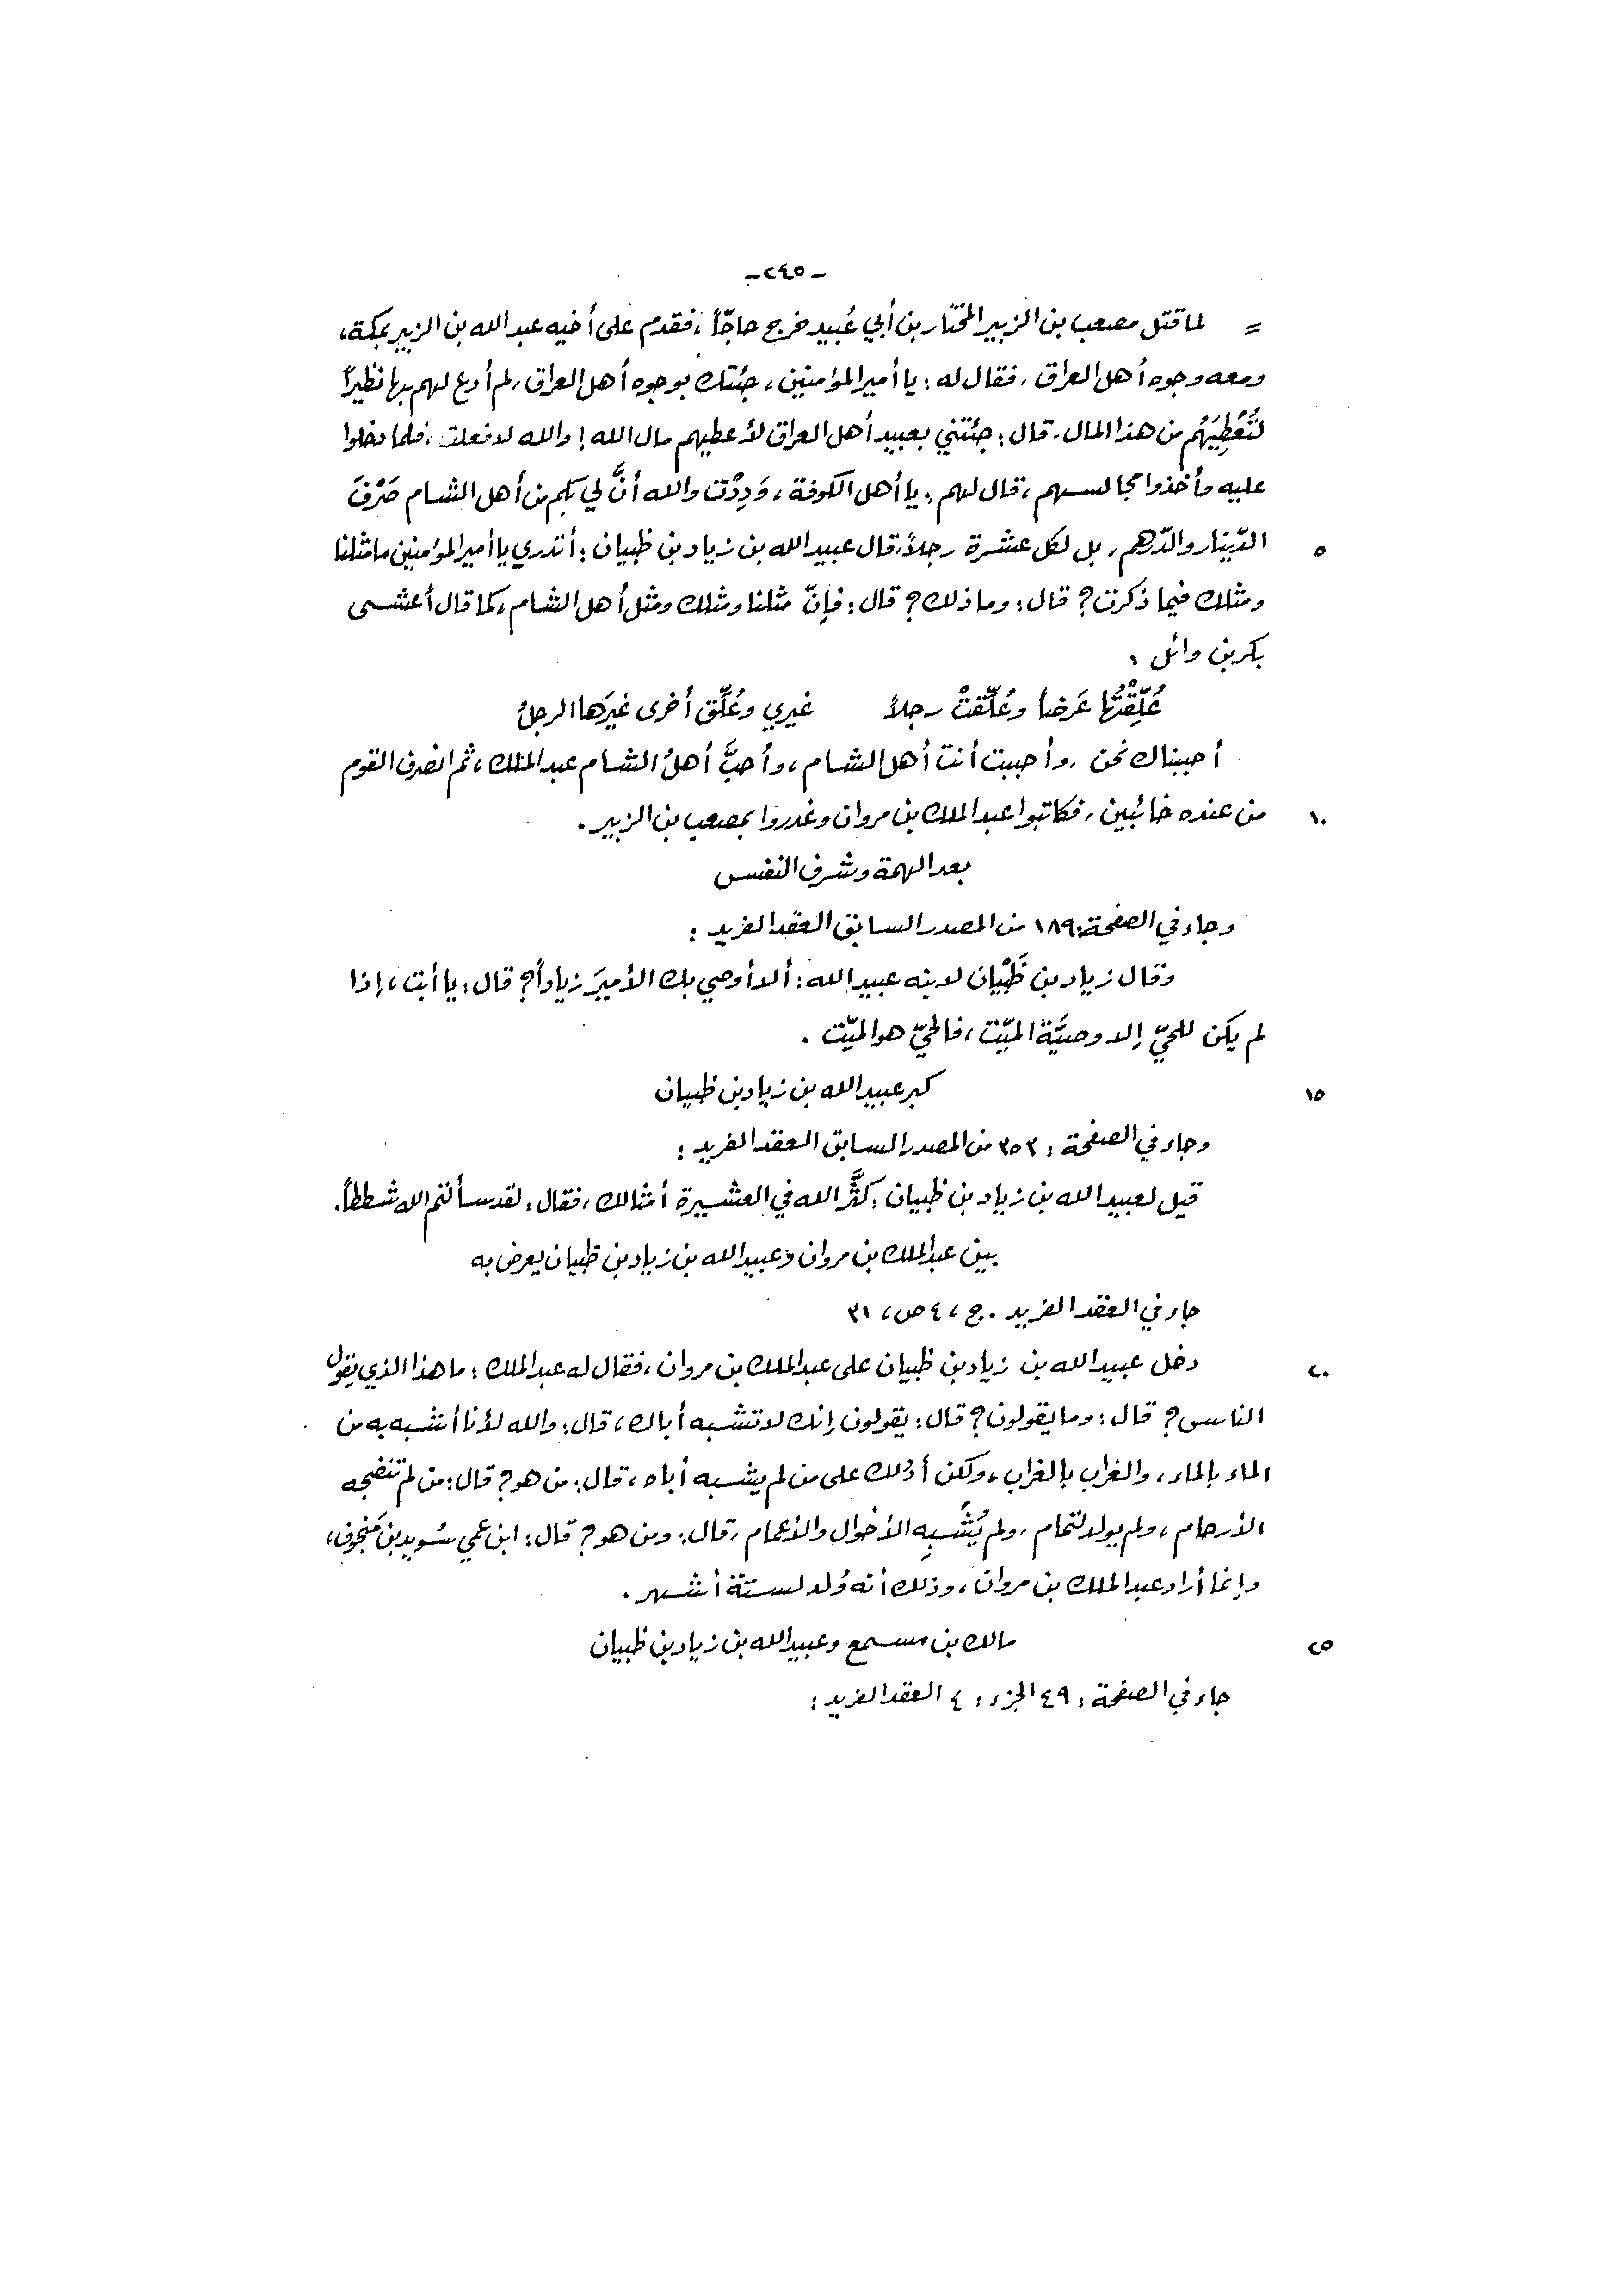 -٢٤٥-
= لما قتل مصعب بن الزبير المختار بن أبي عُبيد خرج حاجّاً، فقدم على أخيه عبد الله بن الزبير بمكة،
ومعه وجوه أهل العراق، فقال له: يا أمير المؤمنين، جئتك بوجوه أهل العراق، لم أدع لهم بها نظيراً
لتُعْطِيَهُم من هذا المال، قال: جئتني بعبيد أهل العراق لأعطيهم مال الله! والله لا فعلت، فلما دخلوا
عليه وأخذوا مجالسهم، قال لهم: يا أهل الكوفة، وَدِدْت والله أنَّ لي بكم من أهل الشام صَرْفَ
٥ الدّينار والدّرهم، بل لكل عشرة رجلاً، قال عبيد الله بن زياد بن ظبيان: أتدري يا أمير المؤمنين ما مثلنا
ومثلك فيما ذكرت؟ قال: وما ذلك؟ قال: فإنّ مثلنا ومثلك ومثل أهل الشام، كما قال أعشى
بكر بن وائل:
عُلِّقْتُها عَرَضاً وعُلِّقتْ رجلاً غيري وعُلِّق أخرى غيرَها الرجلُ
أحببناك نحن، وأحببت أنت أهل الشام، وأحبَّ أهلُ الشام عبد الملك، ثم انصرف القوم
١٠ من عنده خائبين، فكاتبوا عبد الملك بن مروان وغدروا بمصعب بن الزبير.
بعد الهمة وشرف النفس
وجاء في الصفحة: ١٨٩ من المصدر السابق العقد الفريد:
وقال زياد بن ظَبْيان لابنه عبيد الله: ألا أوصي بك الأميرَ زياداً؟ قال: يا أبت، إذا
لم يكن للحيّ إلا وصيَّة الميّت، فالحيّ هو الميّت.
١٥ كبر عبيد الله بن زياد بن ظبيان
وجاء في الصفحة: ٣٥٣ من المصدر السابق العقد الفريد:
قيل لعبيد الله بن زياد بن ظبيان: كثَّر الله في العشيرة أمثالك، فقال: لقد سألتم الله شططاً.
بين عبد الملك بن مروان وعبيد الله بن زياد بن ظبيان يعرض به
جاء في العقد الفريد. ج، ٤ ص، ٣١
٢٠ دخل عبيد الله بن زياد بن ظبيان على عبد الملك بن مروان، فقال له عبد الملك: ما هذا الذي يقول
الناس؟ قال: وما يقولون؟ قال: يقولون إنك لا تشبه أباك، قال: والله لأنا أشبه به من
الماء بالماء، والغراب بالغراب، ولكن أدُلك على من لم يشبه أباه، قال: من هو؟ قال: من لم تنضجه
الأرحام، ولم يولد لتمام، ولم يُشْبِهِ الأخوال والأعمام، قال: ومن هو؟ قال: ابن عمي سُويد بن مَنجوف،
وإنما أراد عبد الملك بن مروان، وذلك أنه وُلد لستة أشهر.
٢٥ مالك بن مسمع وعبيد الله بن زياد بن ظبيان
جاء في الصفحة: ٤٩ الجزء: ٤ العقد الفريد: